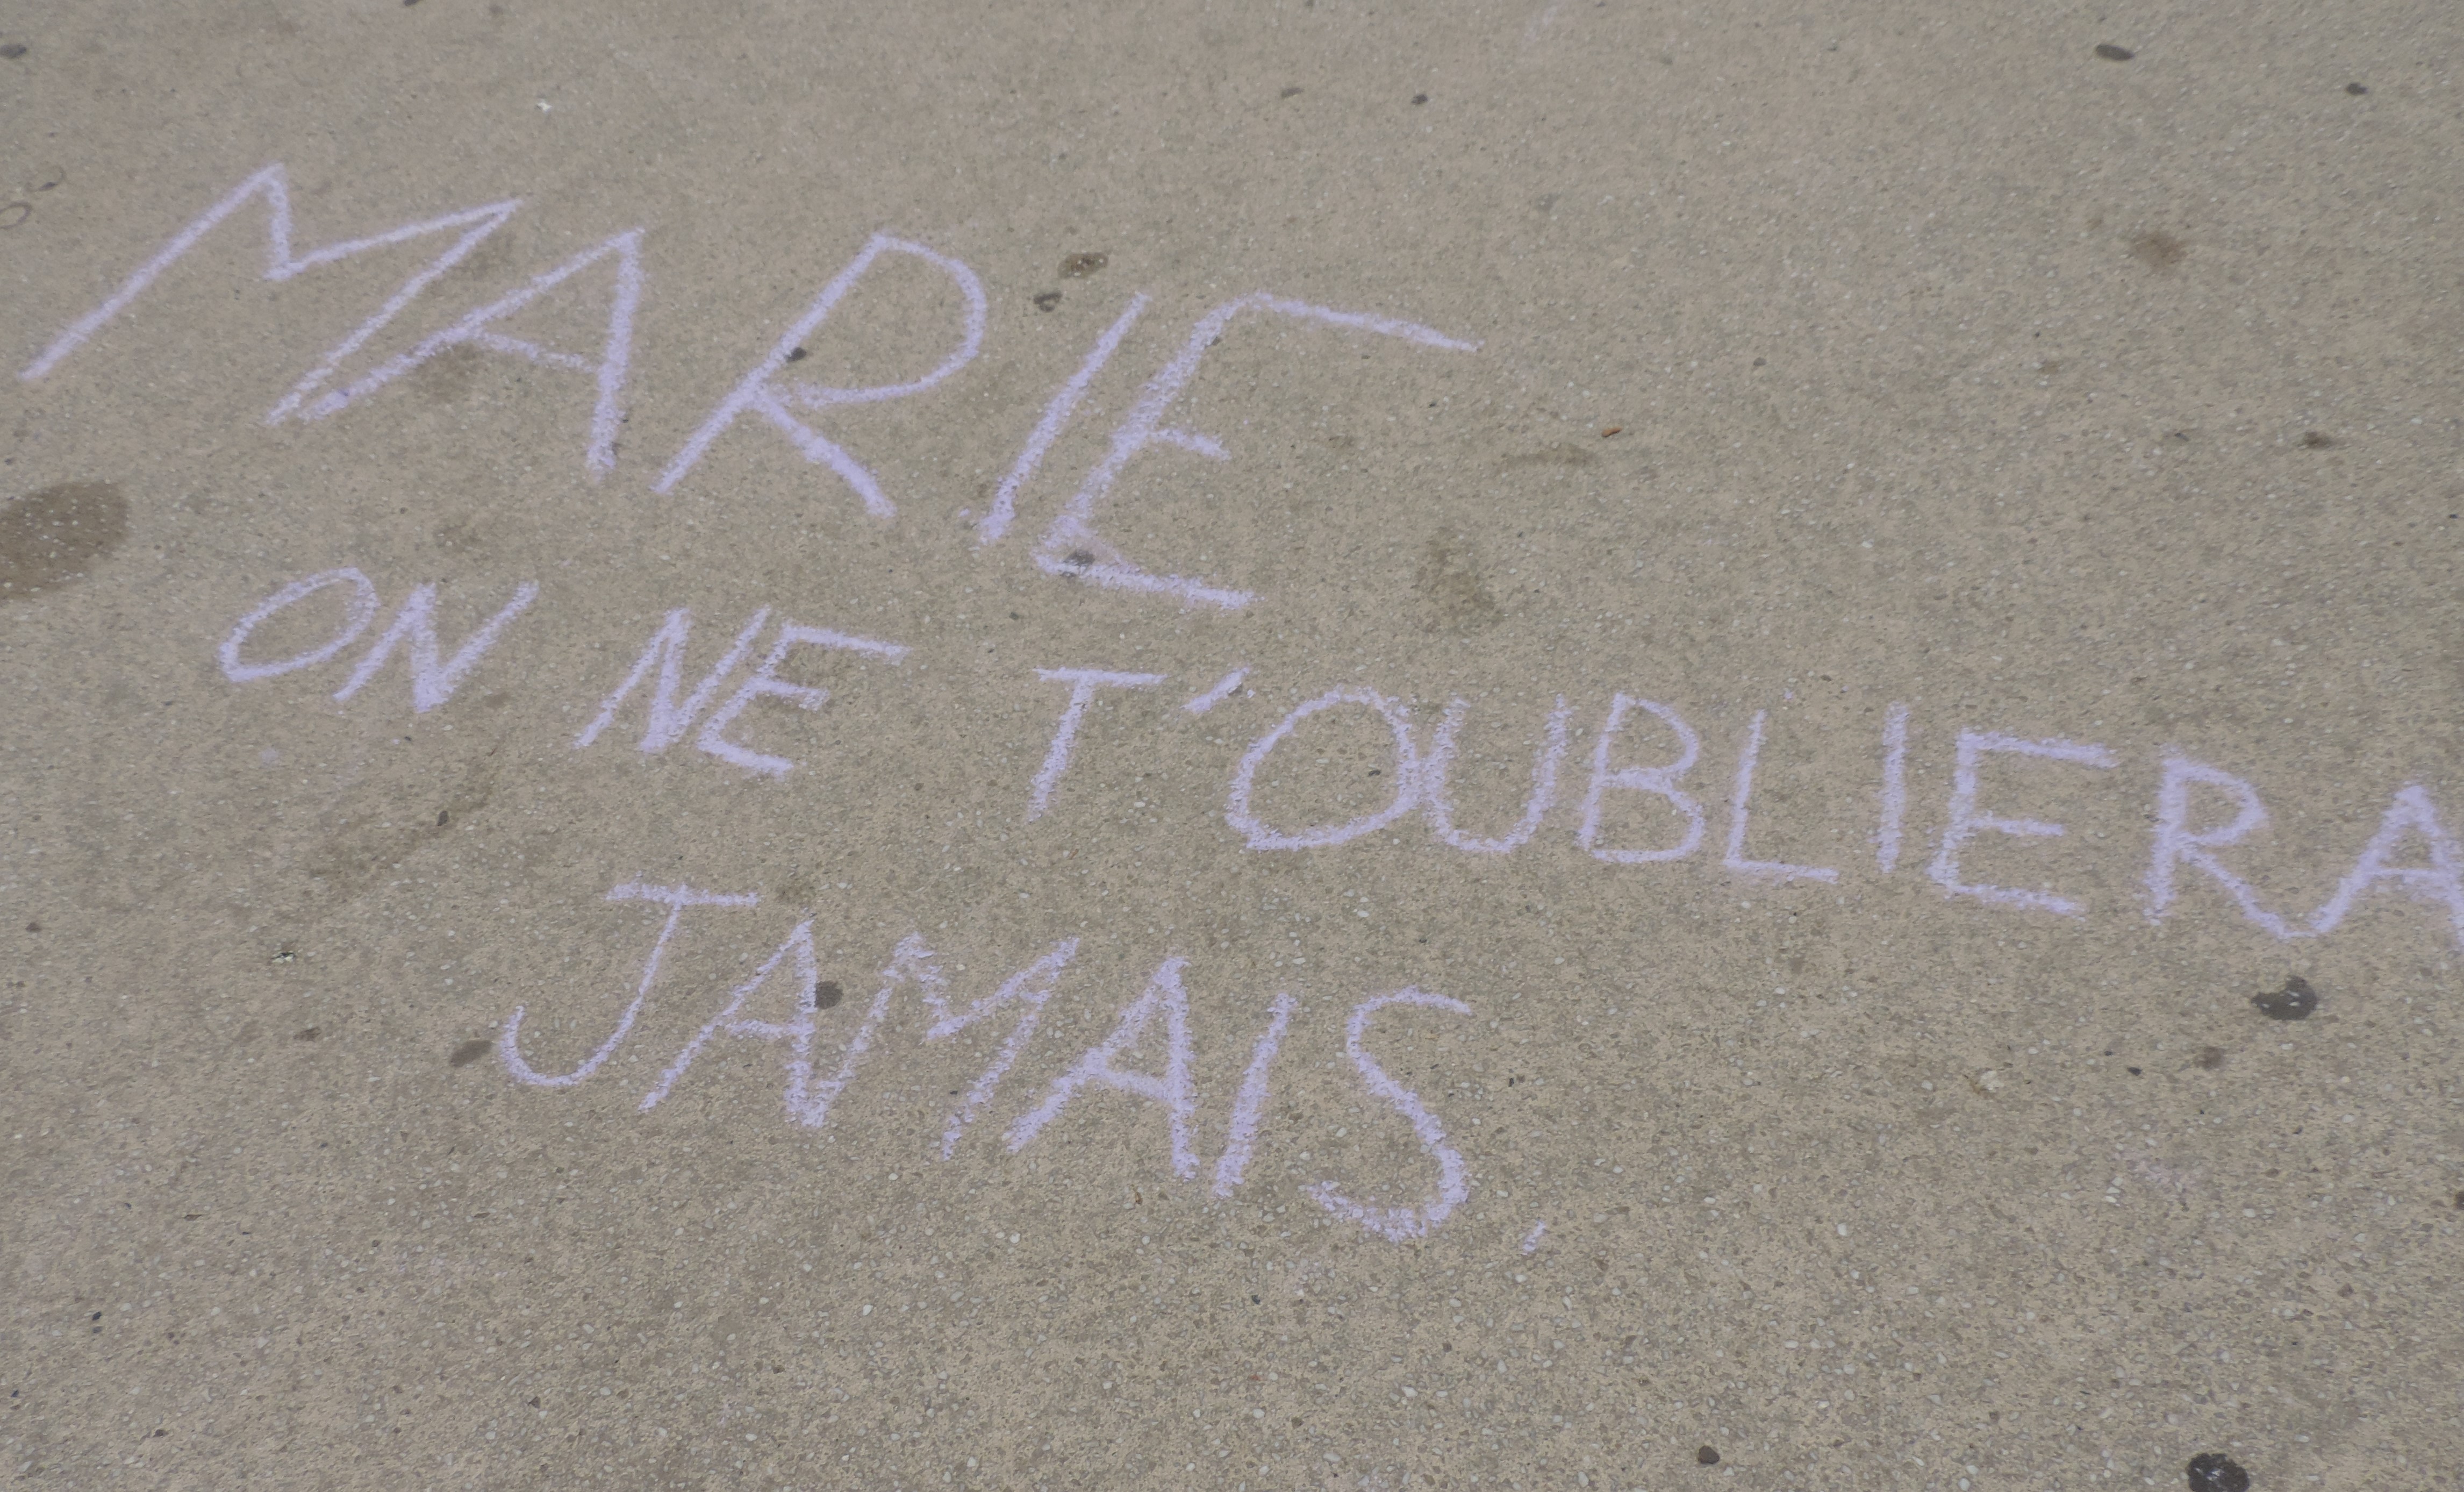 MARIE
ON NE T'OUBLIERA
JAMAIS.